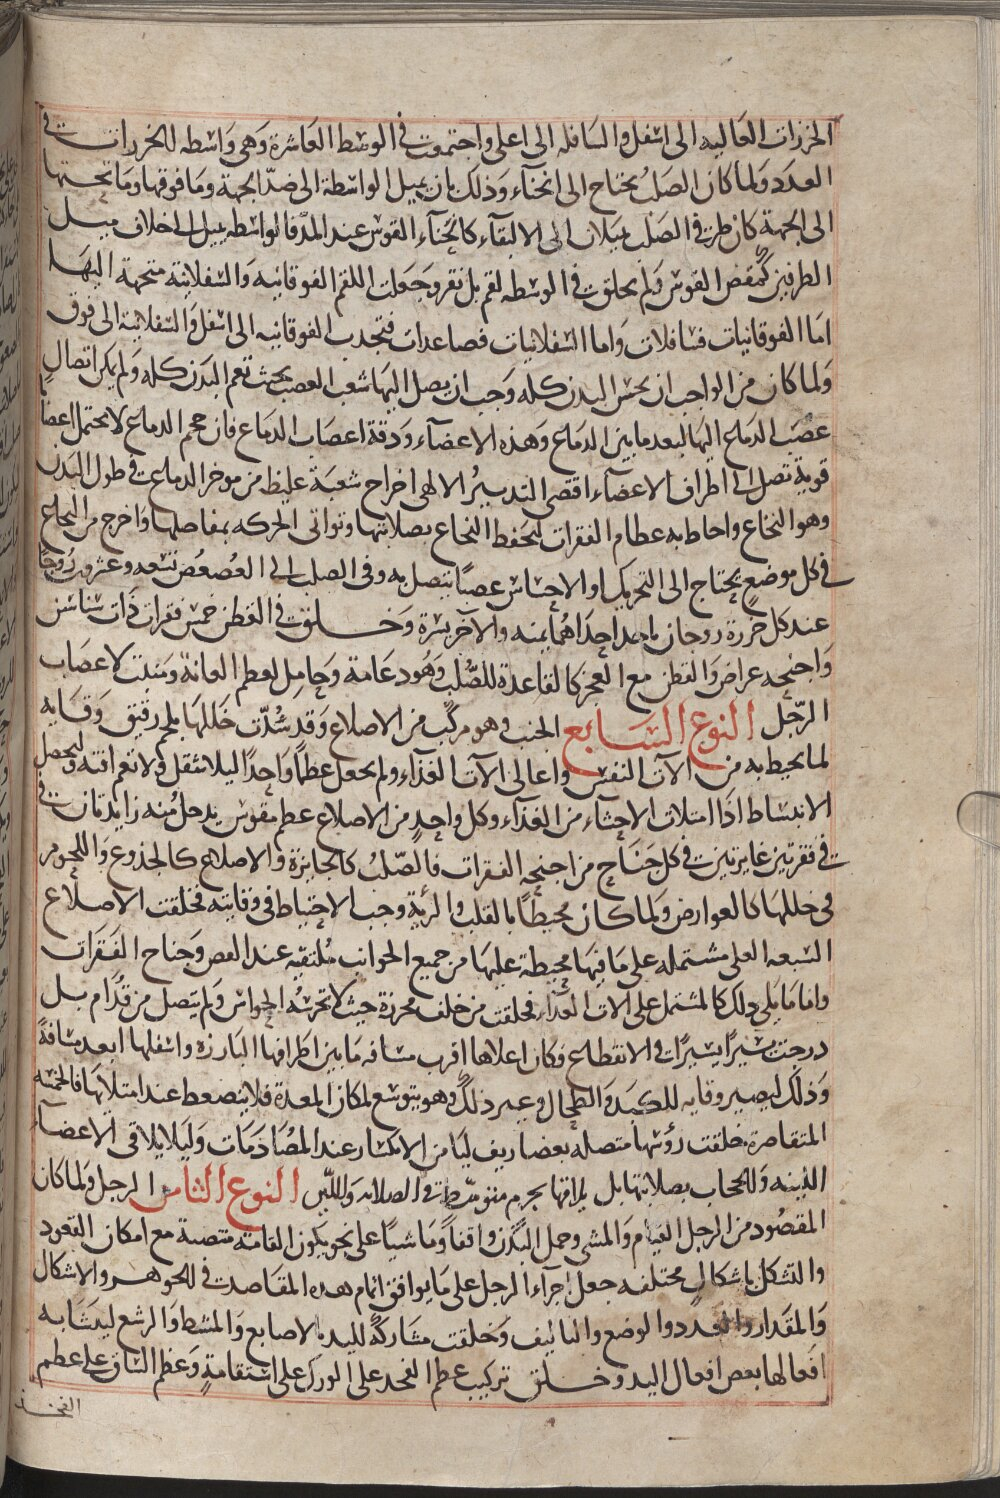 الخرزات العالية الى اسفل والسافله الى اعلى واجتمعت في الوسط العاشرة وهى واسطه للخرزات في
العدد ولما كان الصلب يحتاج الى انحنآء وذلك بان يميل الواسطة الى ضد الجهة وما فوقها وما تحتها
الى الجهة كان طرفي الصلب يميلان الى الالتقآء كانحنآء القوس عند المد فالواسطه يميل الى خلاف ميل
الطرفين كمقبض القوس ولم يخلق في الوسطه لقم بل نقر وجعلت اللقم الفوقانيه والسفلانية متجهة اليها
اما الفوقانيات فنازلات واما السفلانيات فصاعدات فتجدب الفوقانيه الى اسفل والسفلانية الى فوق
ولما كان من الواجب ان يحس البدن كله وجب ان يصل اليها شعب العصب بحيث تعم البدن كله ولم يكن اتصال
عصب الدماغ اليها لبعد ما بين الدماغ وهذه الاعضآء ودقة اعصاب الدماغ فان حجم الدماغ لا يحتمل اعصابا
قوية تصل الى اطراف الاعضآء اقتضى التدبير الالهى اخراج شعبة غليظ من موخر الدماغ في طول البدن
وهو النخاع واحاط به عظام الفقرات لتحفظ النخاع بصلابتها وتواتى الحركه بمفاصلها واخرج من النخاع
في كل موضع يحتاج الى التحريك او الاحساس عصبا يتصل به وفى الصلب الى العصعص تسعه وعشرون زوجا
عند كل خرزة زوجان ياخد احداهما يمنه والآخر يسرة وخلق في القطن خمس فقرات ذات سناسن
واجنحه عراض والقطن مع العجز كالقاعدة للصلب وهو دعامة وحامل لعظم العانة ومنبت لاعصاب
الرجل النوع السابع الجنب وهو مركب من الاضلاع وقد شدت خللها بلحم رقيق وقايه
لما يحيط به من الات النفس واعالى الات الغذآء ولم يجعل عظما واحدا ليلا تثقل ولا تعم افته وليحصل
الانبساط اذا امتلات الاحشآء من الغذآء وكل واحد من الاضلاع عظم مقوس يدخل منه زايدتان في
في فقرتين غايرتين في كل جناح من اجنحة الفقرات فالصلب كالجايزة والاضلاع كالجذوع واللحوم
فى خللها كالعوارض ولما كان محيطا بالقلب والرئة وجب الاحتياط فى وقايته فخلقت الاضلاع
السبعه العلى مشتمله على ما فيها محيطة عليها من جميع الجوانب ملتقيه عند القص وجناح الفقرات
واما ما يلى ذلك كالمشتمل على الات الغذآء فخلقت من خلف محرزة حيث لا تحرسه الحواس ولم يتصل من قدام بل
درجت يسيرا يسيرا في الانقطاع فكان اعلاها اقرب مسافه ما بين اطرافها البارزه واسفلها ابعد مسافة
وذلك ليصير وقايه للكبد والطحال وغير ذلك وهو يتوسع لمكان المعدة فلا ينضغط عند امتلايها فالخمسه
المتقاصرة خلقت رؤسها متصله بغضاريف ليامن الانكسار عند المصادمات وليلا يلاقى الاعضآء
اللينه والحجاب بصلابتها بل يلاقها بجرم متوسط في الصلابه واللين النوع الثامن الرجل ولما كان
المقصود من الرجل القيام والمشى وحمل البدن واقفا وماشيا على نحو يكون القامة منتصبة مع امكان القعود
والتشكل باشكال مختلفه جعل اجزآء الرجل على ما يوافق اتمام هده المقاصد في الجوهر والاشكال
والمقدار والعدد والوضع والتاليف وخلقت مشاركة لليد بالاصابع والمشط والرسغ ليتشابه
افعالها بعض افعال اليد وخلق تركيب عظم الفخد على الورك على استقامة وعظم الساق على عظم
الفخد